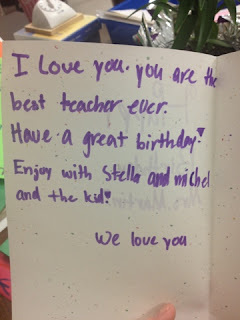 I Love you. you are the
best teacher ever.
Have a great birthday!
Enjoy with Stella and michel
and the kid!
We love you